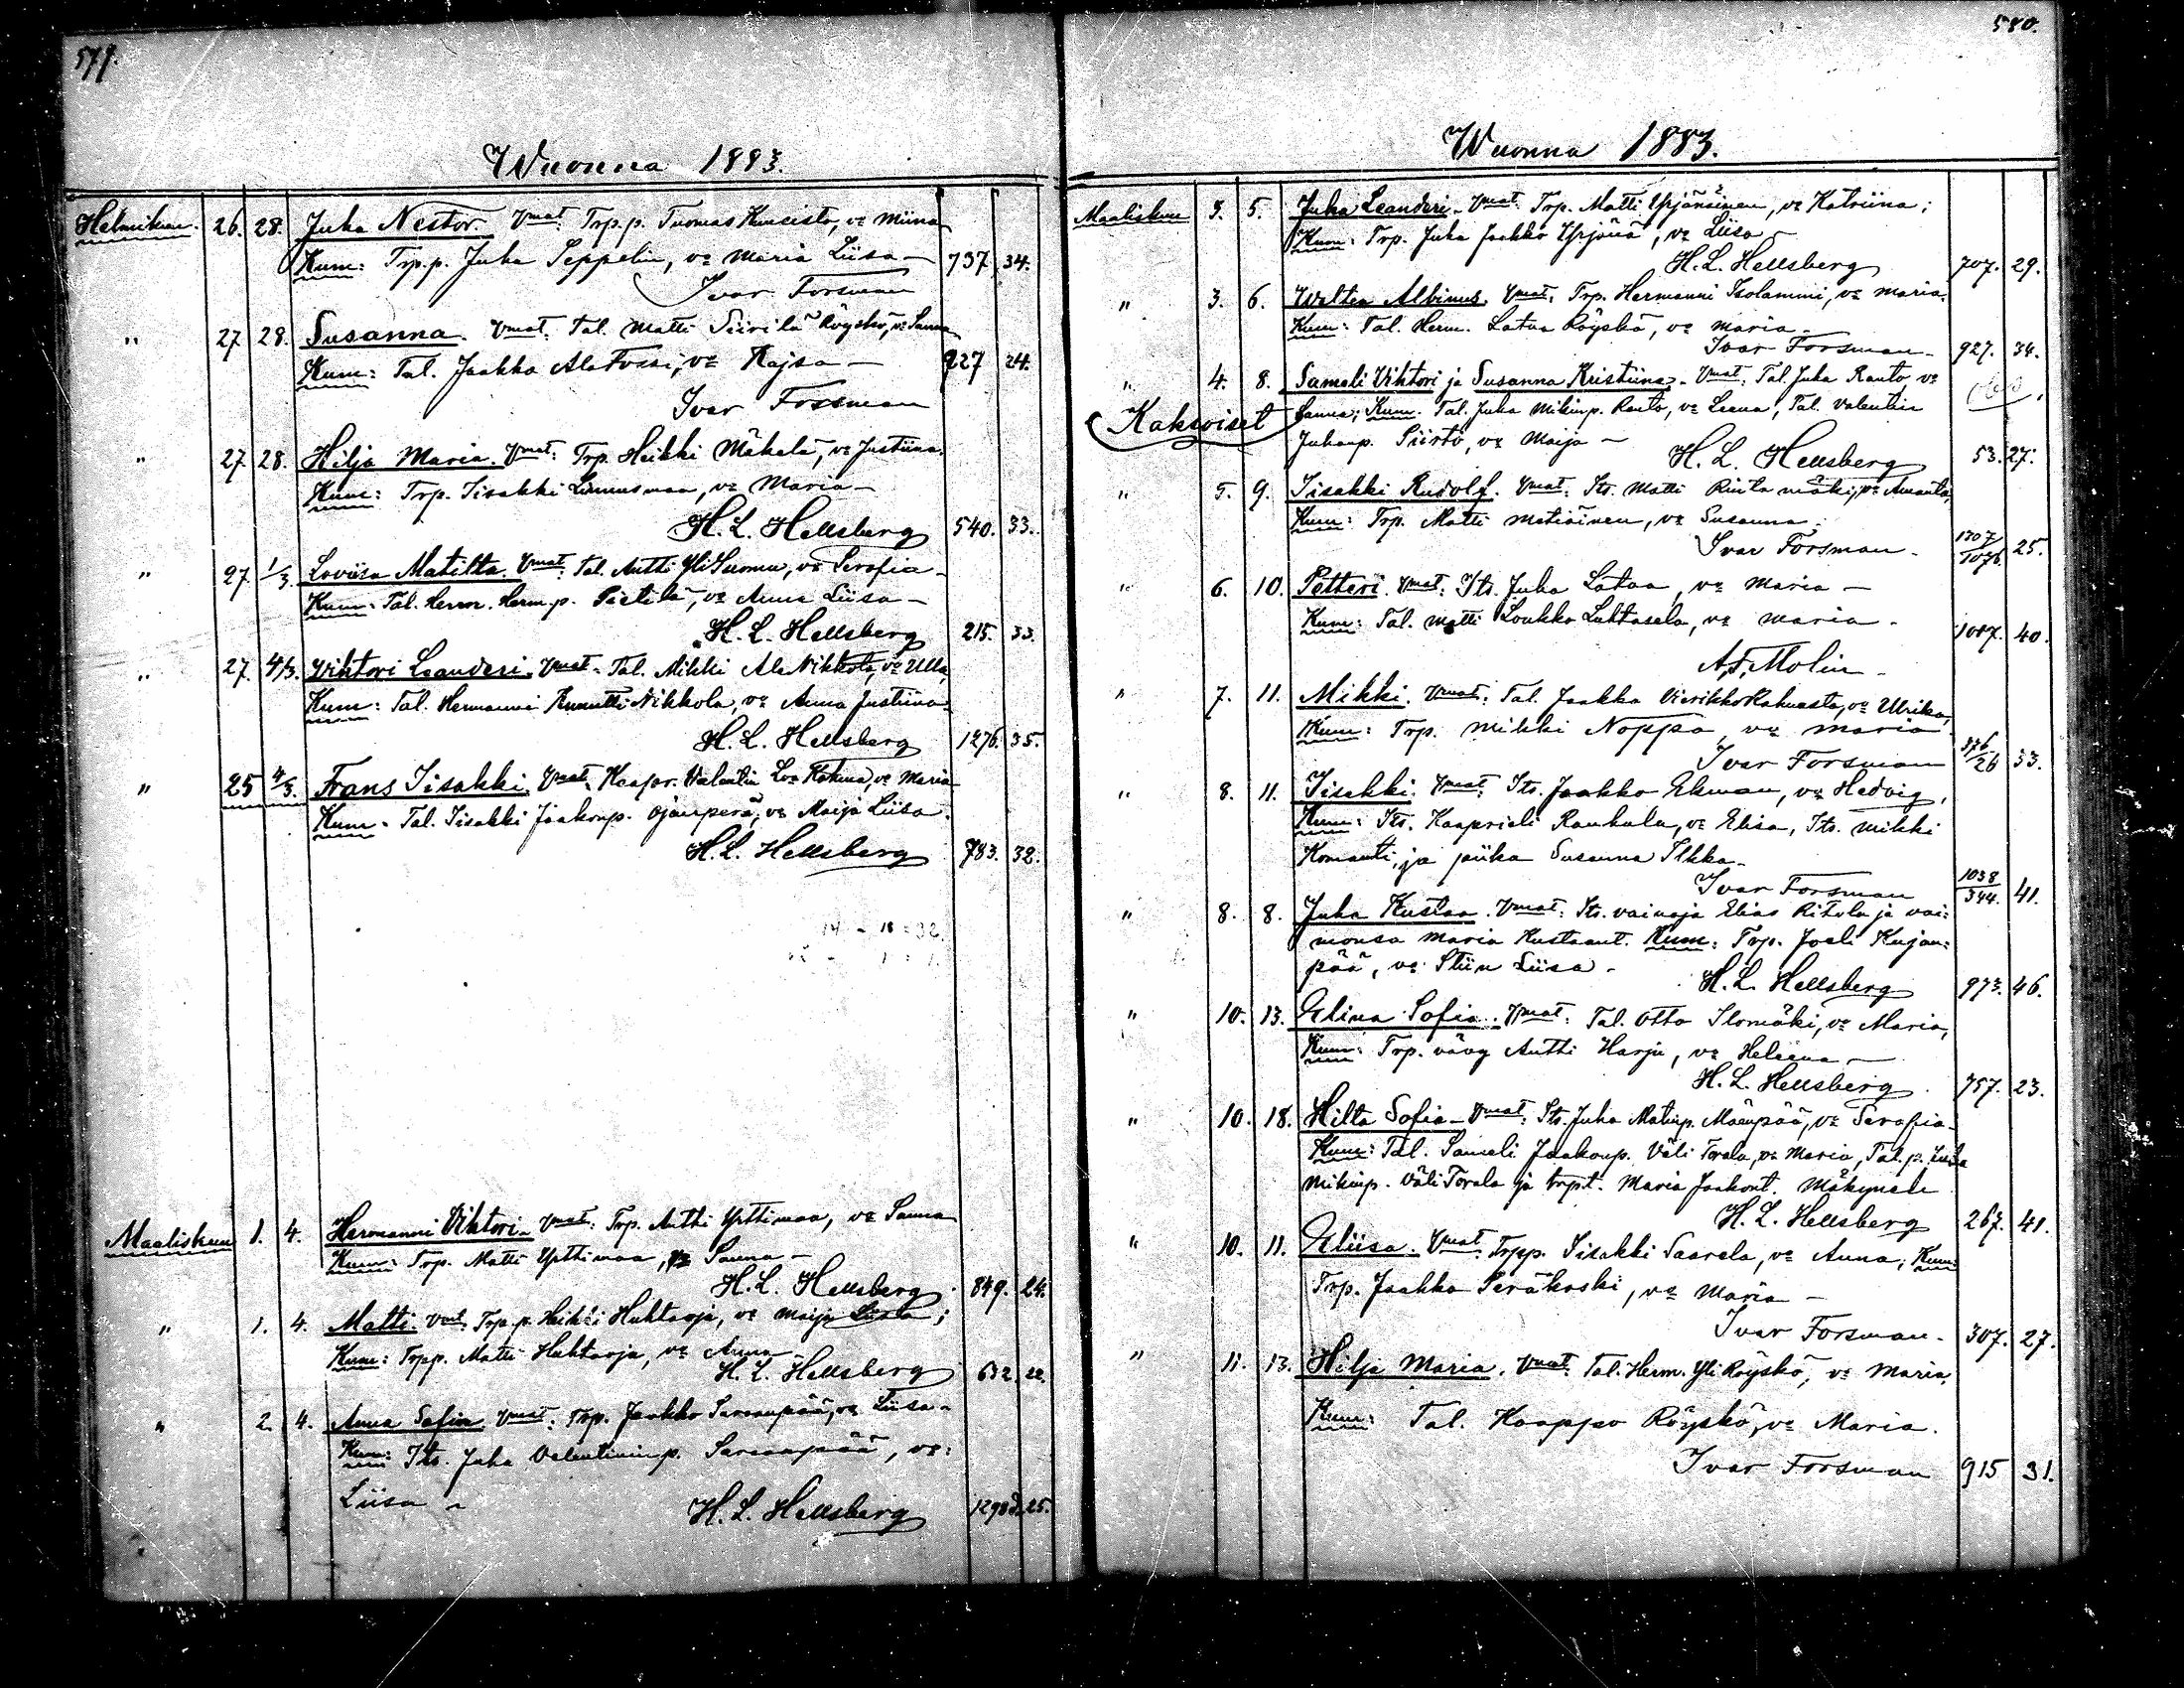 579.
Wuonna 1883.
Helmikuu. 26. 28. Juha Nestor. Vmat: Trp.p. Tuomas Kuusisto, vo Miina
Kum: Trp.p. Juha Seppelin, vo Maria Liisa — 737 34.
Ivar Forsman
" 27 28. Susanna. Vmat: Tal. Matti Röyskö, vo Sanna
Kum: Tal. Jaakko Ala Fossi, vo Kajsa — 927 24.
Ivar Forsman
" 27. 28. Hilja Maria. Vmat: Trp. Heikki Mäkelä, vo Justiina.
Kum: Trp. Iisakki vo Maria —
H. L. Hellsberg 540. 33.
" 27 1/3. Loviisa Matilta. Vmat: Tal. Antti Yli Luoma, vo Serafia —
Kum: Tal. Herm. Herm.p. Pietilä, vo Anna Liisa —
H. L. Hellsberg 215. 33.
" 27. 4/3. Viktori Leanderi. Vmat: Tal. Mikki Ala Nikkola, vo Ulla,
Kum: Tal. Hermanni Nikkola, vo Anna Justiina.
H. L. Hellsberg 1276. 35.
" 25 4/3. Frans Iisakki. Vmat: Valentin vo Maria
Kum: Tal. Iisakki Jaakonp. Ojanperä, vo Maija Liisa.
H. L. Hellsberg 783. 32.
Maaliskuu 1. 4. Hermanni Viktori. Vmat: Trp. Antti Yttimaa, vo Sanna
Kum: Trp. Matti vo Sanna —
H. L. Hellsberg 849. 24.
" 1. 4. Matti. Vmat: Trp.p. Heikki Huhtaoja, vo Maija Liisa;
Kum: Trpp. Matti Huhtaoja, vo Anna —
H. L. Hellsberg 632. 22.
" 2. 4. Anna Sofia. Vmat: Trp. Jaakko vo Liisa —
Kum: Its. Juha Valentininp. vo:
Liisa — H. L. Hellsberg 25.
580.
Wuonna 1883.
Maaliskuu 3. 5. Juha Leanderi. Vmat: Trp. Matti Yrjänäinen, vo Katriina;
Kum: Trp. Juha Jaakko Yrjänä, vo Liisa —
H. L. Hellsberg 707. 29.
" 3. 6. Albinus. Vmat: Trp. Hermanni Isolammi, vo Maria.
Kum: Tal. Herm. Latva Röyskö, vo Maria —
Ivar Forsman — 927. 34.
" 4. 8. Sameli Viktori ja Susanna Kristiina. Vmat: Tal. Juha Ranto, vo
Kaksoiset Sanna; Kum. Tal. Juha Mikinp. Ranto, vo Leena, Tal. Valentin
Juhanp. Siirto, vo Maija —
H. L. Hellsberg 53. 27.
" 5. 9. Iisakki Rudolf. Vmat: Its. Matti Rintamäki, vo Amanta,
Kum: Trp. Matti Matiainen, vo Susanna;
Ivar Forsman — 1307/1076 25.
" 6. 10. Petteri. Vmat: Its. Juha Latva, vo Maria —
Kum: Tal. Matti Loukko Luhtasela, vo Maria —
1087. 40.
A. F. Molin —
" 7. 11. Mikki. Vmat: Tal. Jaakko vo Ulrika,
Kum: Trp. Mikki Noppa, vo Maria
Ivar Forsman 376/26 33.
" 8. 11. Iisakki. Vmat: Its. Jaakko Ekman, vo Hedvig,
Kum: Its. Kaaprieli Rankala, vo Elisa, Its. Mikki
Komanti, ja piika Susanna Ilkka —
Ivar Forsman 1038/344. 41.
" 8. 8. Juha Kustaa. Vmat: Its. vainaja Elias Ritola ja vai-
monsa Maria Kustaant. Kum: Trp. Joeli Kujan-
pää, vo: Stiin Liisa —
H. L. Hellsberg 973. 46.
" 10. 13. Elina Sofia. Vmat: Tal. Otto Ilomäki, vo Maria,
Kum: Trp. vävy Antti Harju, vo Heleena —
H. L. Hellsberg 757. 23.
" 10. 18. Hilta Sofia — Vmat: Its. Juha Matinp. Mäenpää, vo Serafia —
Kum: Tal. Sameli Jaakonp. Väli Torala, vo Maria, Tal.p. Juha
Mikinp. Väli Torala ja trpt. Maria Jaakont.
H. L. Hellsberg 267. 41.
" 10. 11. Eliisa. Vmat: Trpp. Iisakki Saarela, vo Anna; Kum:
Trp. Jaakko Peräkoski, vo Maria —
Ivar Forsman. 307. 27.
" 11. 13. Hilja Maria. Vmat: Tal. Herm. Yli Röyskö, vo Maria,
Kum: Tal. Kaappo Röyskö, vo Maria.
Ivar Forsman 915 31.